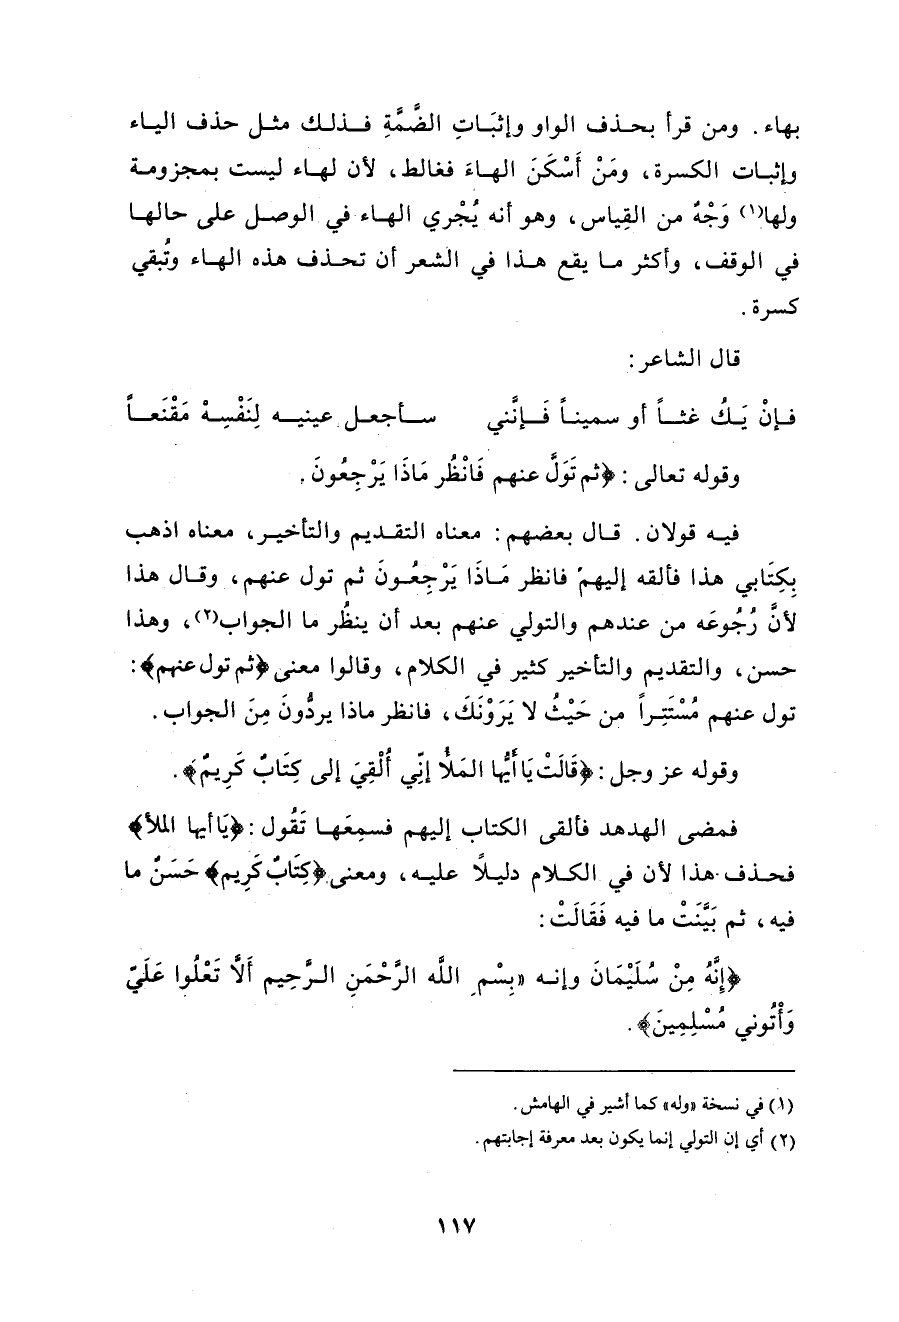 بهاء. ومن قرأ بحذف الواو وإثبَاتِ الضُّمَّةِ فذلك مثل حذف الياء
وإثبات الكسرة، ومَنْ أَسْكَنَ الهاءَ فغالط، لأن لهاء ليست بمجزومة
ولها(١) وَجْهٌ من القِياس، وهو أنه يُجْري الهاء في الوصل على حالها
في الوقف، وأكثر ما يقع هذا في الشعر أن تحذف هذه الهاء وتُبقي
كسرة.
قال الشاعر:
فإنْ يَكُ غثاً أو سميناً فَإنَّني سأجعل عينيه لِنَفْسِهْ مَقْنَعاً
وقوله تعالى: ﴿ثم تَوَلَّ عنهم فَانْظُر مَاذَا يَرْجِعُونَ.
فيه قولان. قال بعضهم: معناه التقديم والتأخير، معناه اذهب
بِكِتَابي هذا فألقه إليهمْ فانظر مَاذَا يَرْجِعُونَ ثم تول عنهم، وقال هذا
لأنَّ رُجُوعَه من عندهم والتولي عنهم بعد أن ينظُر ما الجواب(٢)، وهذا
حسن، والتقديم والتأخير كثير في الكلام، وقالوا معنى ﴿ثم تول عنهم﴾:
تول عنهم مُسْتَتِراً من حَيْثُ لا يَرَوْنَكَ، فانظر ماذا يردُّونَ مِنَ الجواب.
وقوله عز وجل: ﴿قَالَتْ يَا أَيُّها المَلأُ إنِّي أُلْقِيَ إلى كِتَابٌ كَرِيمٌ﴾.
فمضى الهدهد فألقى الكتاب إليهم فسمِعَها تَقُول: ﴿يَا أيها الملأ﴾
فحذف هذا لأن في الكلام دليلاً عليه، ومعنى ﴿كِتَابٌ كَرِيم﴾ حَسَنٌ ما
فيه، ثم بَيَّنَتْ ما فيه فَقَالَتْ:
﴿إنَّهُ مِنْ سُلَيْمَانَ وإنه «بِسْمِ اللَّه الرَّحْمَنِ الرَّحِيم أَلَّا تَعْلُوا عَلَيّ
وَأْتُوني مُسْلِمِينَ﴾.
(١) في نسخة «وله» كما أشير في الهامش.
(٢) أي إن التولي إنما يكون بعد معرفة إجابتهم.
١١٧